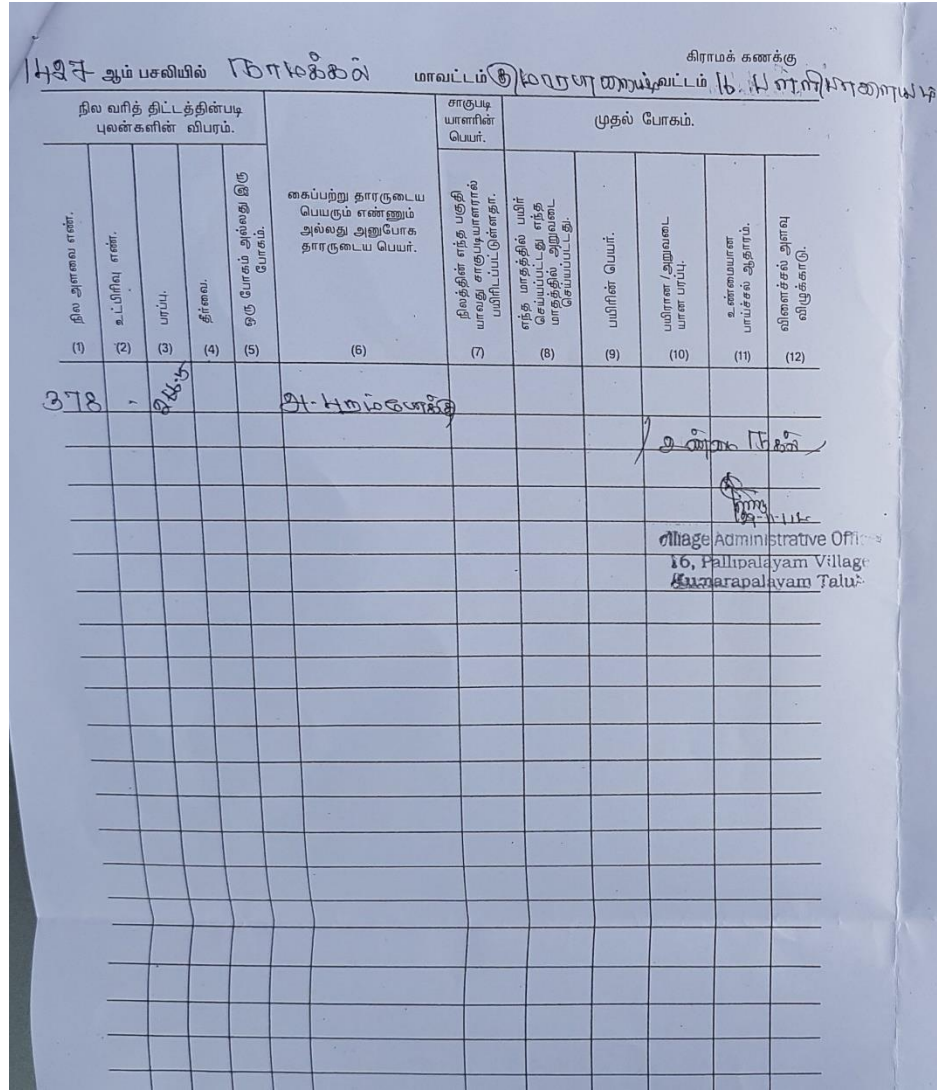 கிராமக் கணக்கு
1427 ஆம் பசலியில் நாமக்கல் மாவட்டம் குமாரபாளையம் வட்டம் 16. பள்ளிபாளையம்
நில வரித் திட்டத்தின்படி புலன்களின் விபரம்.
சாகுபடி யாளரின் பெயர்.
முதல் போகம்.
நில அளவை எண்.
உட்பிரிவு எண்.
பரப்பு.
தீர்வை.
ஒரு போகம் அல்லது இரு போகம்.
கைப்பற்று தாரருடைய
பெயரும் எண்ணும்
அல்லது அனுபோக
தாரருடைய பெயர்.
நிலத்தின் எந்த பகுதி யாவது சாகுபடியாளரால் பயிரிடப்பட்டுள்ளதா.
எந்த மாதத்தில் பயிர் செய்யப்பட்டது எந்த மாதத்தில் அறுவடை செய்யப்பட்டது.
பயிரின் பெயர்.
பயிரான /அறுவடை யான பரப்பு.
உண்மையான பாய்ச்சல் ஆதாரம்.
விளைச்சல் அளவு விழுக்காடு.
(1) (2) (3) (4) (5) (6) (7) (8) (9) (10) (11) (12)
378 - அ-புறம்போக்கு
/ உண்மை நகல் /
Village Administrative Office
16, Pallipalayam Village
Kumarapalayam Taluk